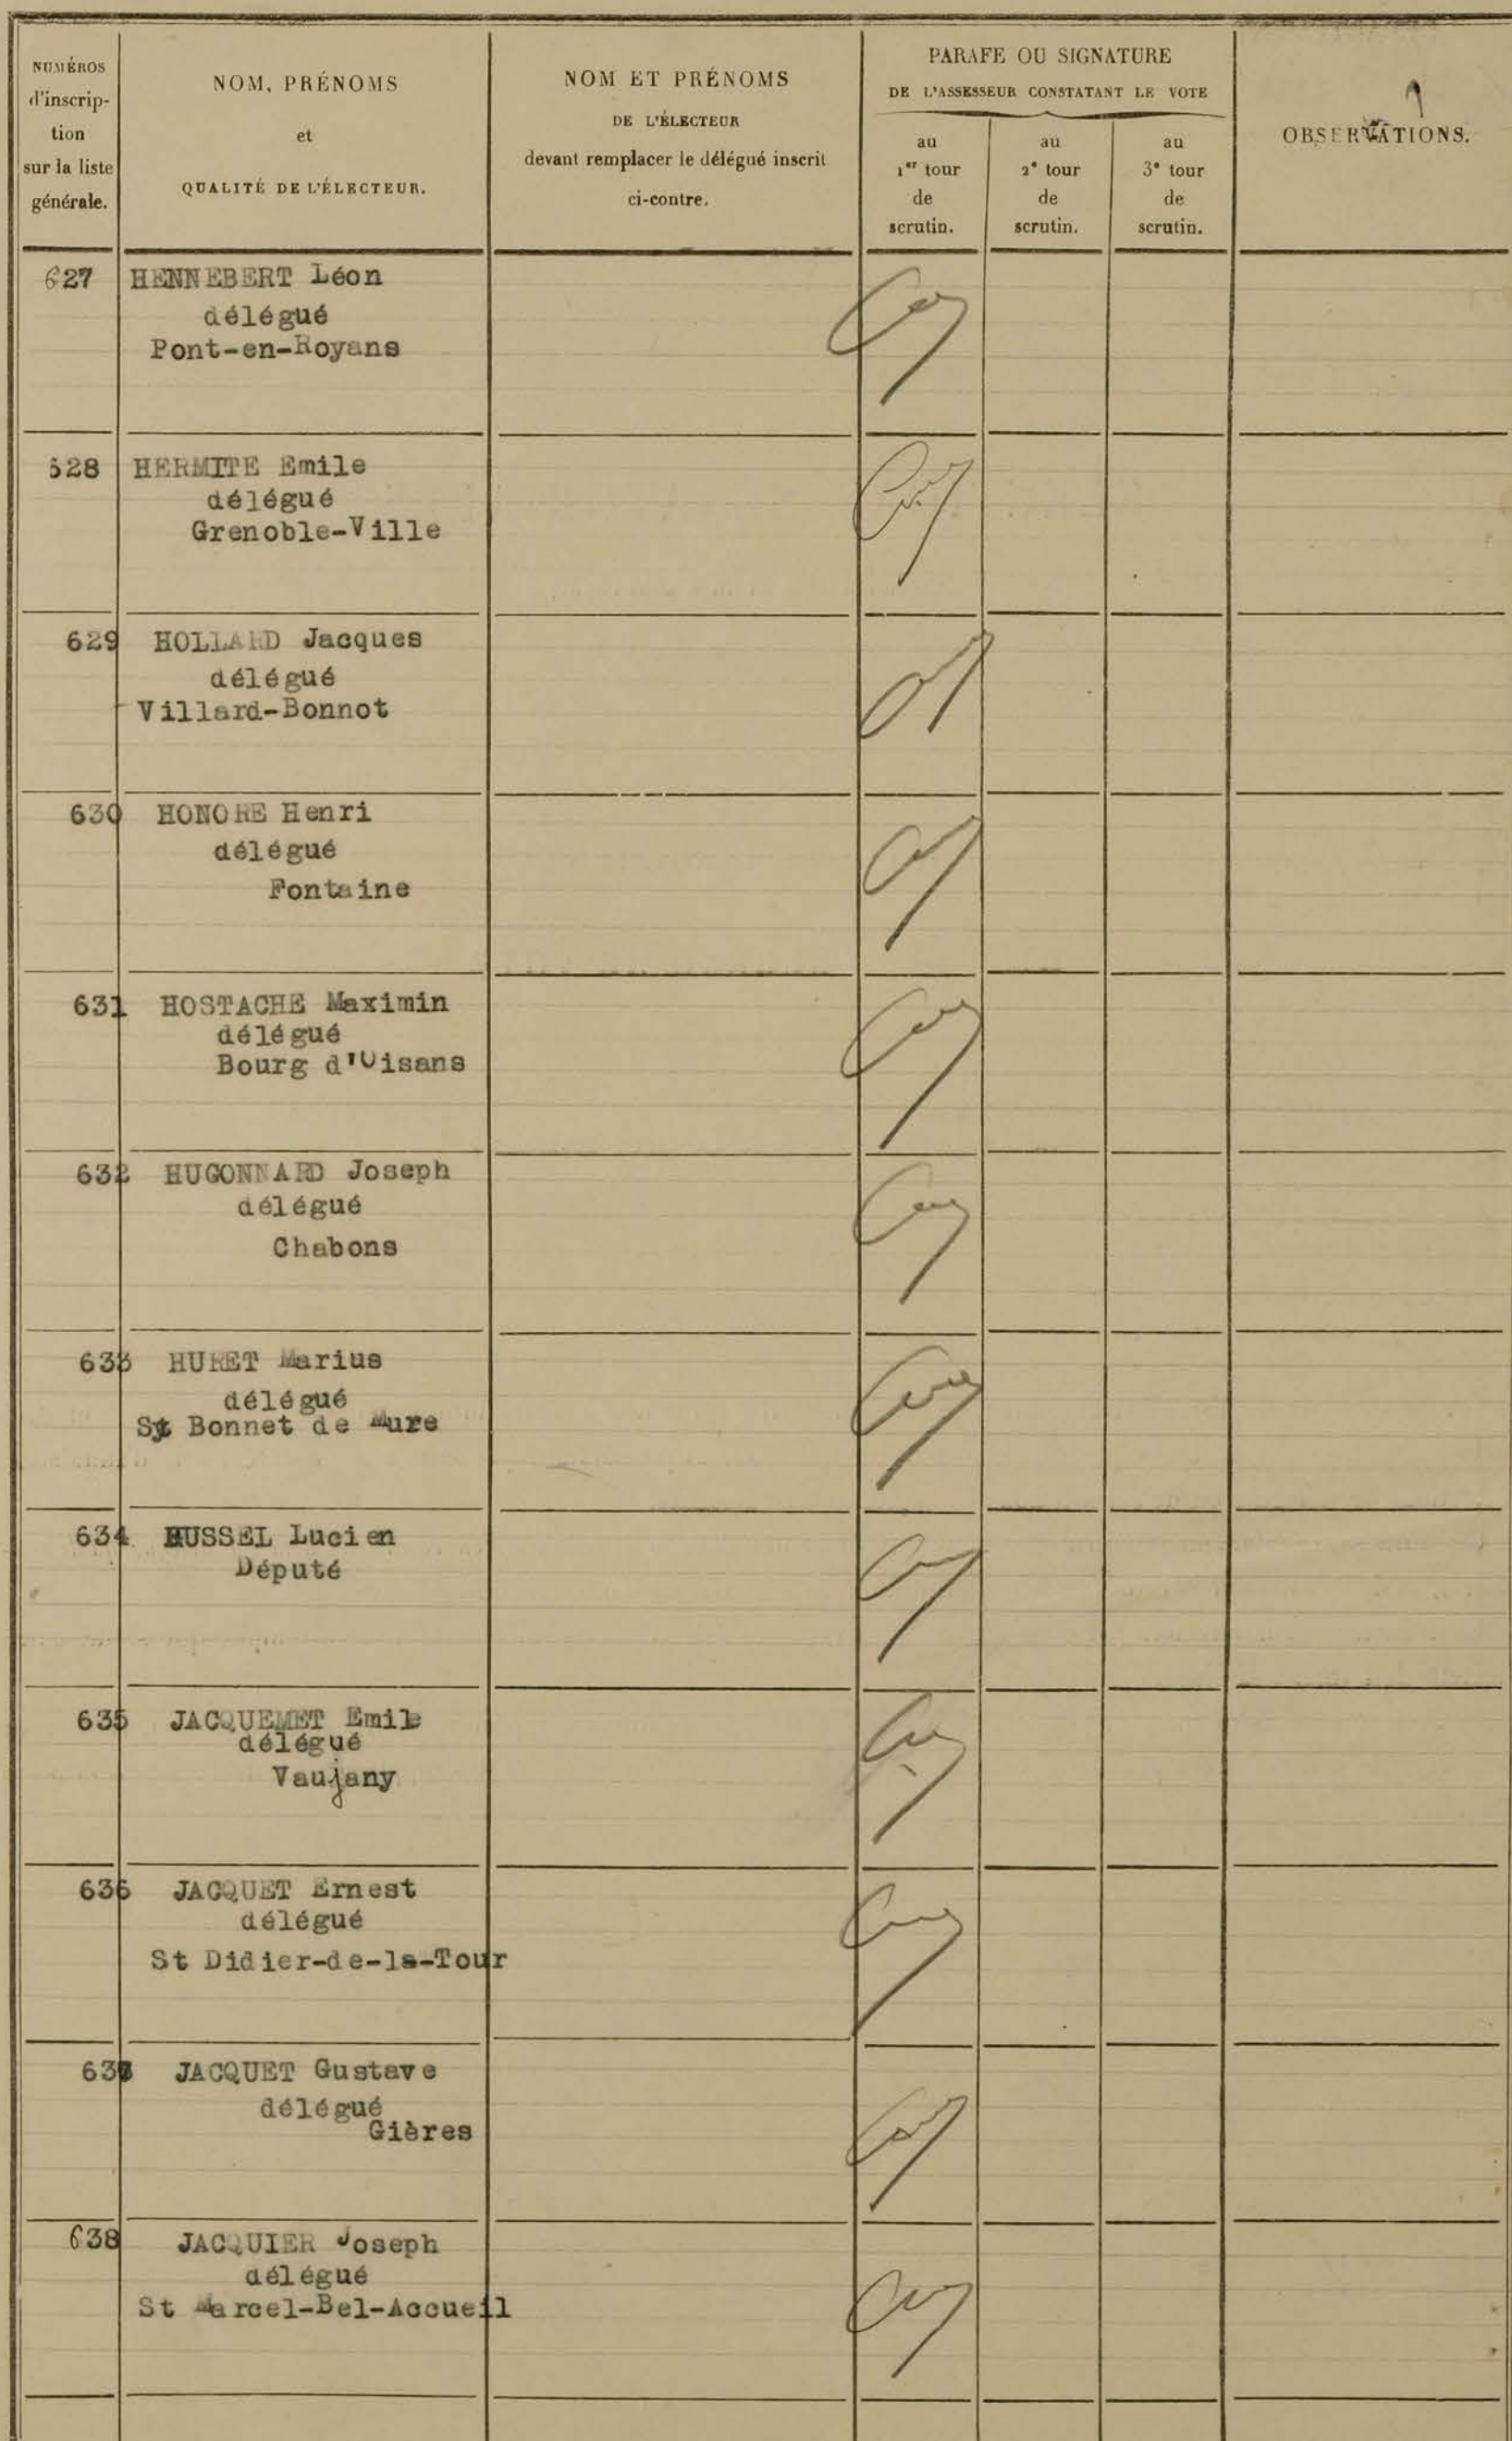 NUMÉROS
d'inscrip-
tion
sur la liste
générale.
NOM, PRÉNOMS
et
QUALITÉ DE L'ÉLECTEUR.
NOM ET PRÉNOMS
DE L'ÉLECTEUR
devant remplacer le délégué inscrit
ci-contre.
PARAFE OU SIGNATURE
DE L'ASSESSEUR CONSTATANT LE VOTE
au
1er tour
de
scrutin.
au
2e tour
de
scrutin.
au
3e tour
de
scrutin.
OBSERVATIONS.
627 HENNEBERT Léon
délégué
Pont-en-Royans
628 HERMITE Emile
délégué
Grenoble-Ville
629 HOLLARD Jacques
délégué
Villard-Bonnot
630 HONORE Henri
délégué
Fontaine
631 HOSTACHE Maximin
délégué
Bourg d'Oisans
632 HUGONNARD Joseph
délégué
Chabons
633 HURET Marius
délégué
St Bonnet de Mure
634 HUSSEL Lucien
Député
635 JACQUEMET Emile
délégué
Vaujany
636 JACQUET Ernest
délégué
St Didier-de-la-Tour
637 JACQUET Gustave
délégué
Gières
638 JACQUIER Joseph
délégué
St Marcel-Bel-Accueil